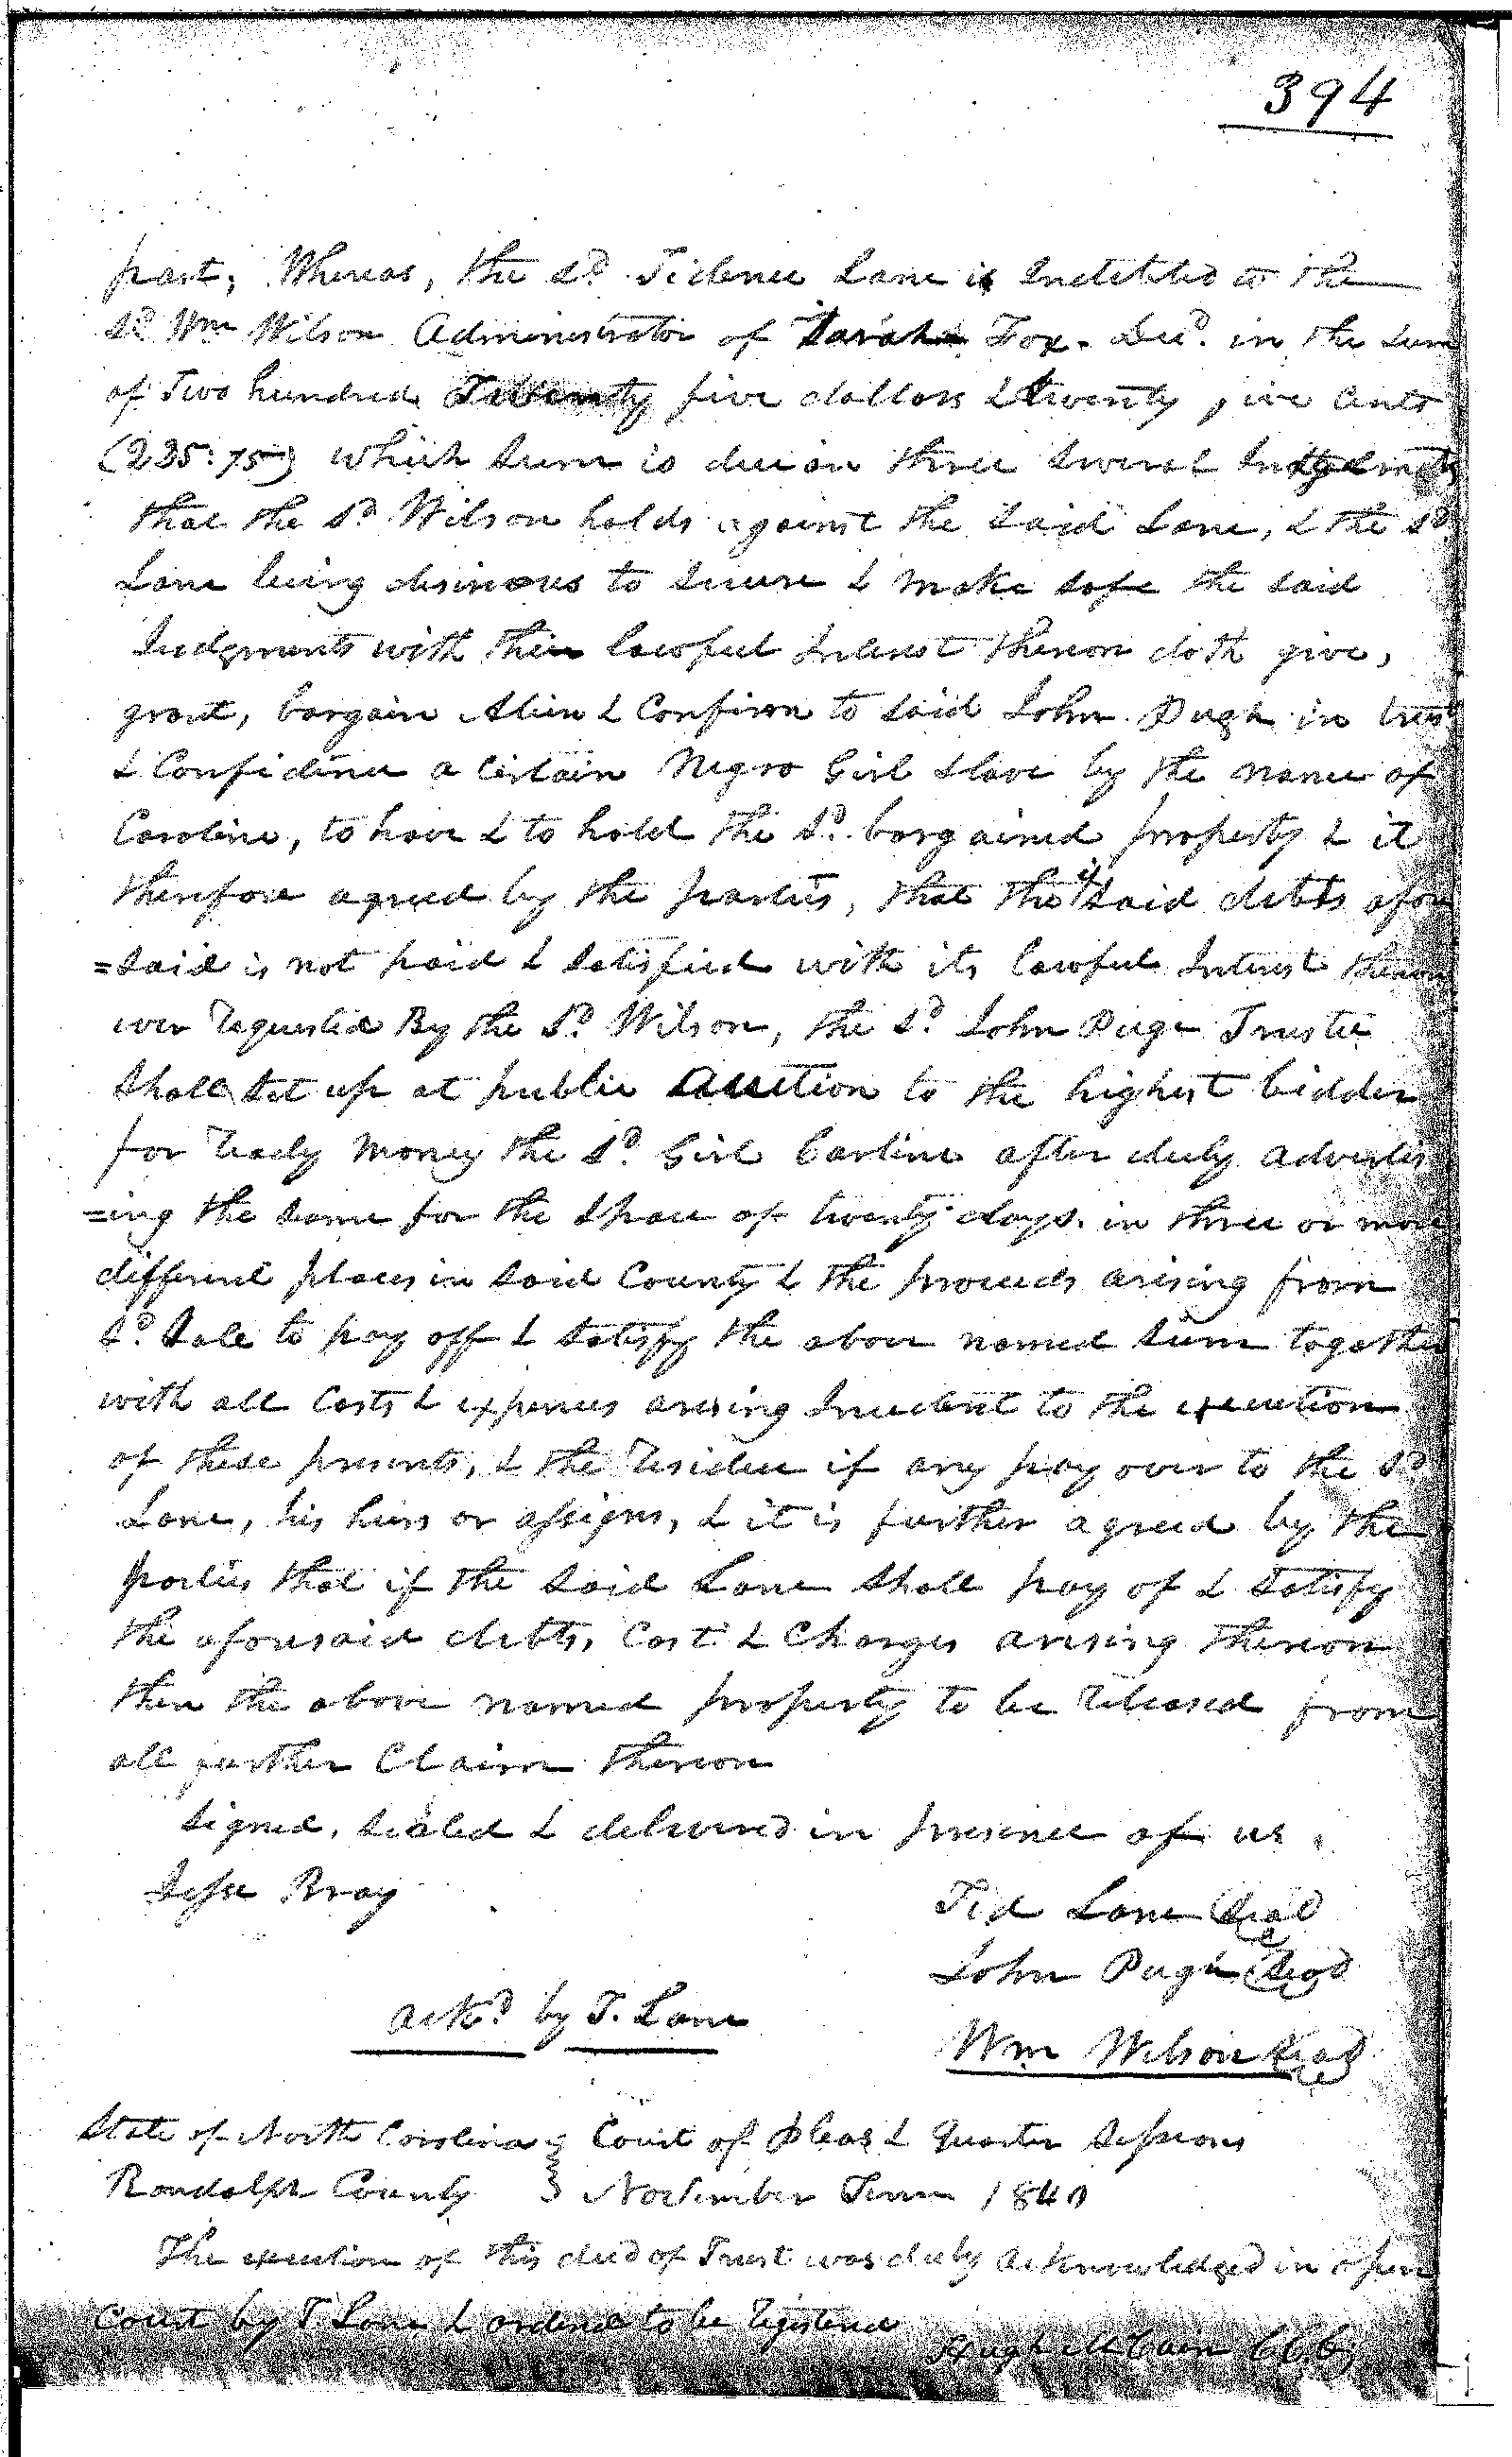 394
part, Whereas, the sd. Tidence Lane is Indebted to the
sd. Wm Wilson Administrator of Sarah Fox. Decd. in the sum
of Two hundred Twenty five dollars & twenty five cents
(225:75) which sum is due on three several Judgments
that the sd. Wilson holds against the said Lane, & the sd.
Lane being desirious to secure & make safe the said
Judgments with their lawful Interest thereon doth give,
grant, bargain Alien & Confirm to said John Pugh in trust
& Confidence a Certain Negro Girl slave by the name of
Caroline, to have & to hold the sd. bargained property & it
therefore agreed by the parties, that the if said debts afore
=said is not paid & satisfied with its lawful Interest thereon
when requested By the sd. Wilson, the sd. John Pugh Trustee
shall set up at public auction to the highest bidder
for ready money the sd. Girl Carline after duly advertis
=ing the same for the space of twenty days. in three or more
different places in said County & the proceeds arising from
sd. Sale to pay off & satisfy the above named sum together
with all Costs & expenses arising Incident to the execution
of these presents, & the residue if any pay over to the sd
Lane, his heirs or assigns, & it is further agreed by the
parties that if the said Lane shall pay of & satisfy
the aforesaid debts, Cost & Charges arising thereon
then the above named property to be released from
all further Claim thereon
Signed, sealed & delivered in presence of us,
Jesse Bray
Tid Lane (Seal)
John Pugh (Seal)
Ackd. by T. Lane
Wm Wilson (Seal)
State of North Carolina } Court of pleas & Quarter Sessions
Randolph County } November Term 1840
The execution of this deed of Trust was duly acknowledged in open
Court by T. Lane & ordered to be registered
Hugh McCain CCC